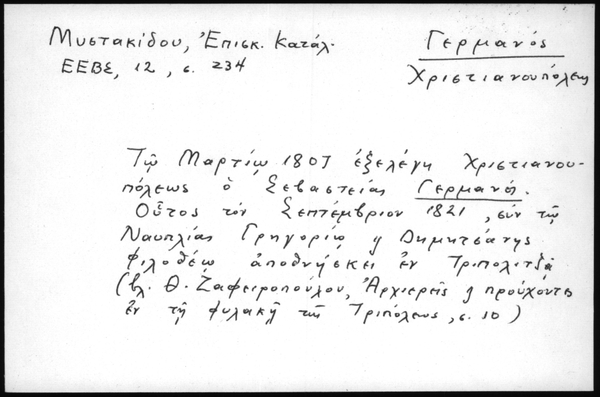 Μυστακίδου, Ἐπισκ. Κατάλ.
ΕΕΒΣ, 12, σ. 234
Γερμανός
Χριστιανουπόλεως
Τῷ Μαρτίῳ 1807 ἐξελέγη Χριστιανου-
πόλεως ὁ Σεβαστείας Γερμανός.
Οὗτος τόν Σεπτέμβριον 1821, σύν τῷ
Ναυπλίας Γρηγορίῳ ϗ Δημητσάνης
Φιλοθέῳ ἀποθνήσκει ἐν Τριπολιτσᾷ
(βλ. Θ. Ζαφειροπούλου, Ἀρχιερεῖς ϗ προύχοντες
ἐν τῇ φυλακῇ τῆς Τριπόλεως, σ. 10)